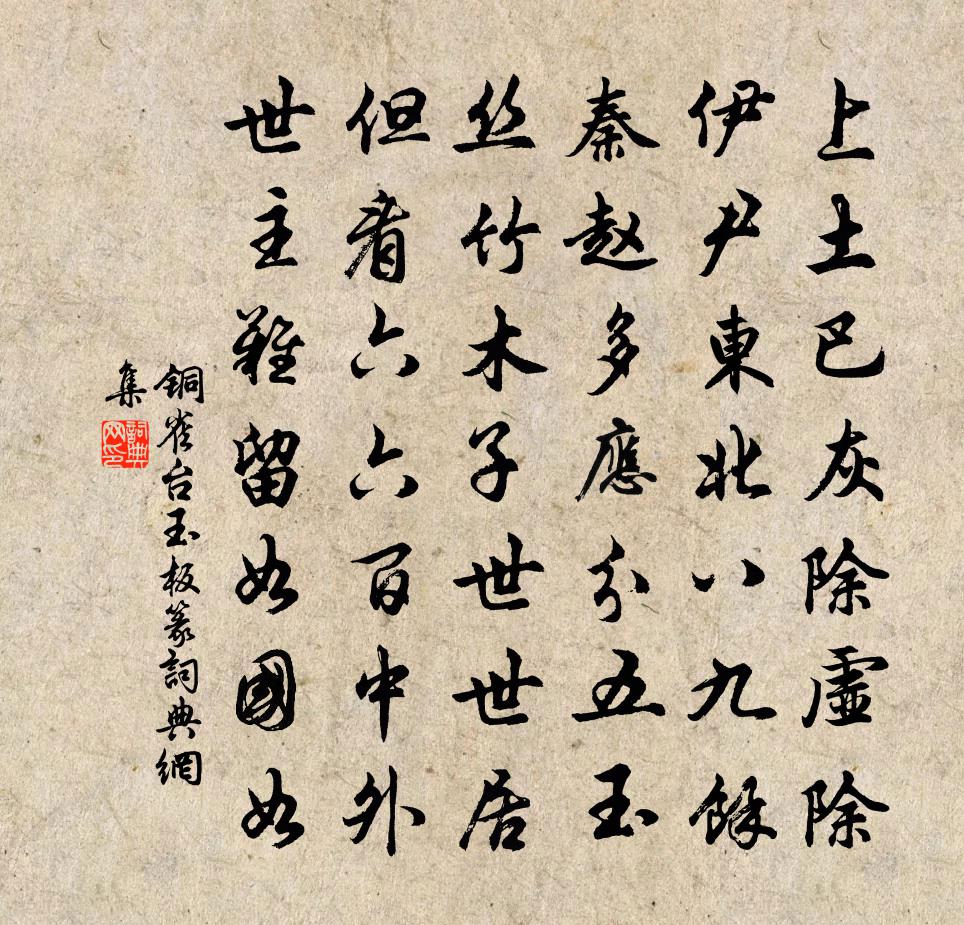 上土巴灰除虛除
伊尹東北八九餘
秦赵多應分五玉
丝竹木子世世居
但看六六百中外
世主難留如國如
銅雀台玉板篆詞典網
集
詞典网印